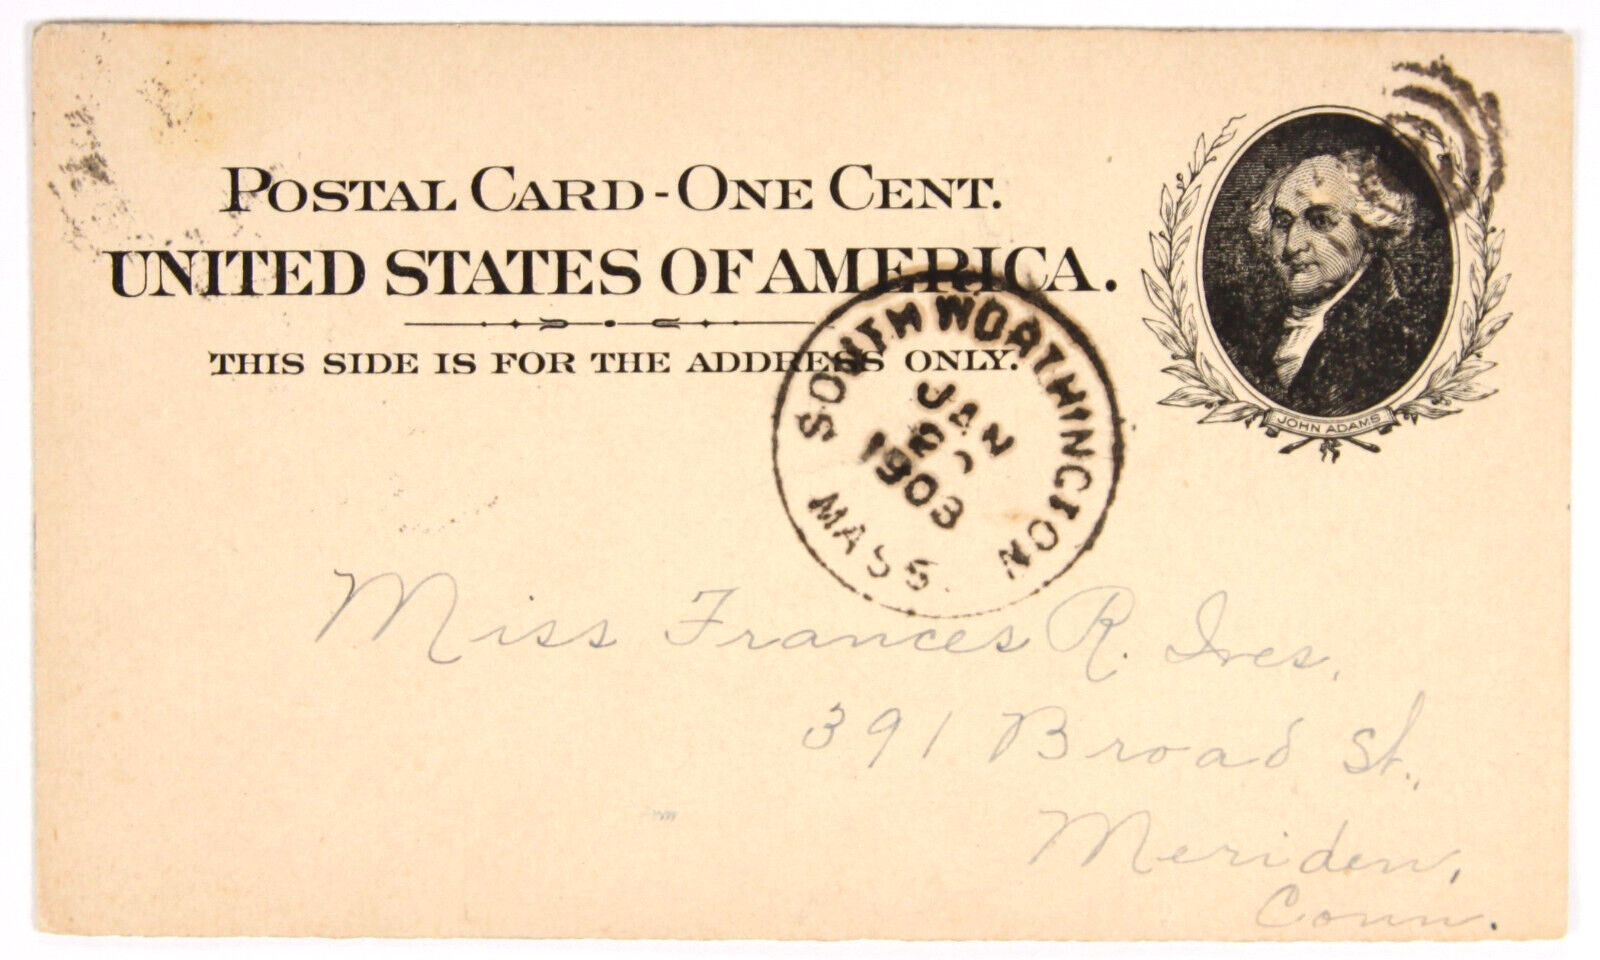 POSTAL CARD - ONE CENT.
UNITED STATES OF AMERICA.
THIS SIDE IS FOR THE ADDRESS ONLY.
JOHN ADAMS
SOUTH WORTHINGTON
JAN
1903
MASS.
Miss Frances R. Ives,
391 Broad St.,
Meriden,
Conn.